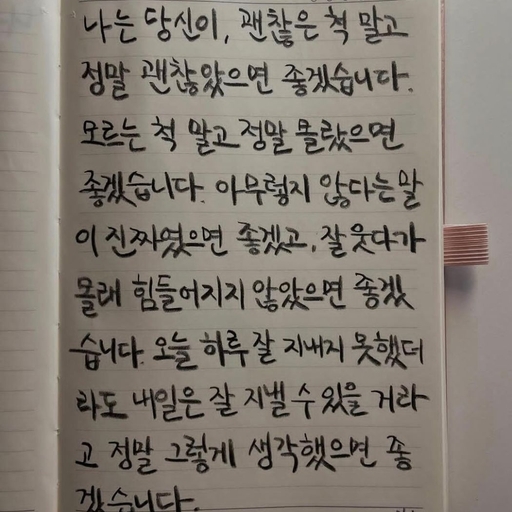 나는 당신이, 괜찮은 척 말고
정말 괜찮았으면 좋겠습니다.
모르는 척 말고 정말 몰랐으면
좋겠습니다. 아무렇지 않다는 말
이 진짜였으면 좋겠고, 잘 웃다가
몰래 힘들어지지 않았으면 좋겠
습니다. 오늘 하루 잘 지내지 못했더
라도 내일은 잘 지낼 수 있을 거라
고 정말 그렇게 생각했으면 좋
겠습니다.